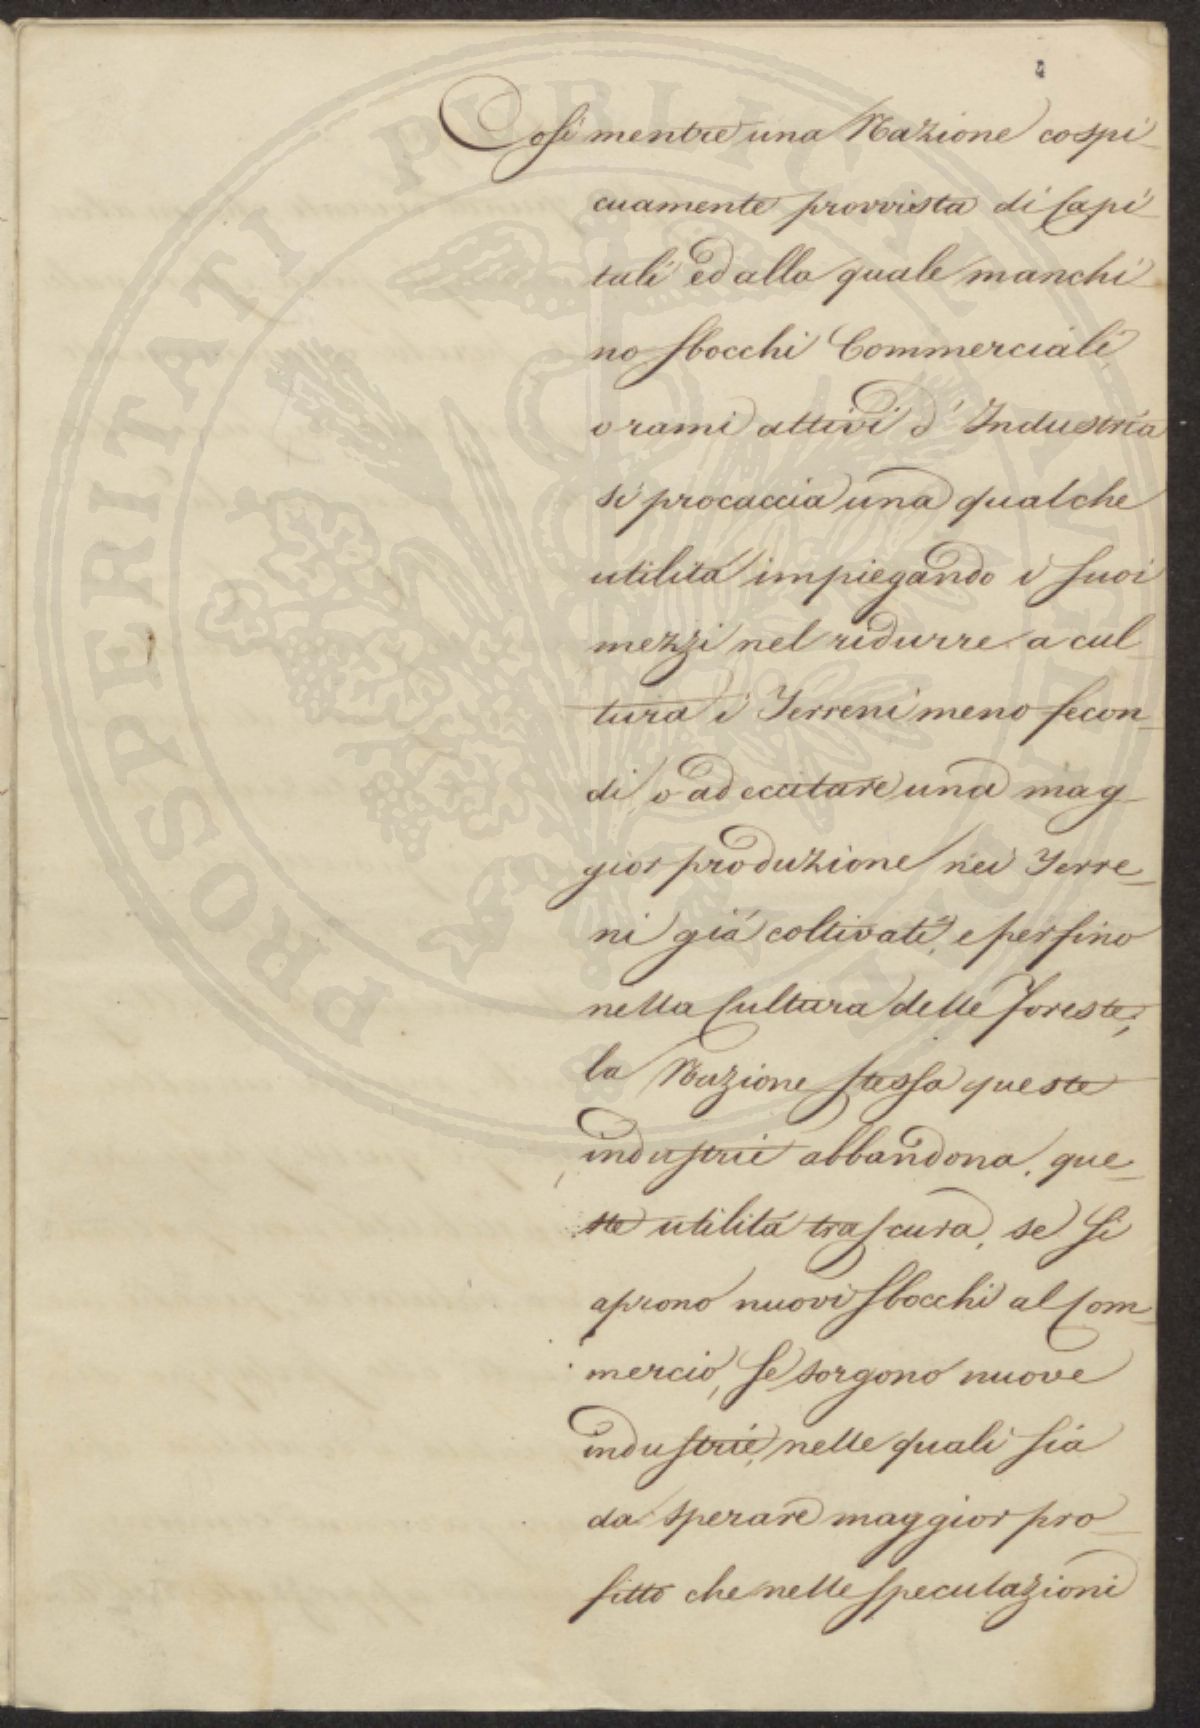 4
Così mentre una Nazione cospi-
cuamente provvista di Capi-
tali ed alla quale manchi-
no sbocchi Commerciali,
o rami attivi d'Industria
si procaccia una qualche
utilità impiegando i suoi
mezzi nel ridurre a cul-
tura i Terreni meno fecon-
di, o ad eccitare una mag-
gior produzione nei Terre-
ni già coltivati, e perfino
nella Cultura delle Foreste;
la Nazione stessa queste
industrie abbandona, que-
ste utilità trascura, se si
aprono nuovi sbocchi al Com-
mercio, se sorgono nuove
industrie, nelle quali sia
da sperare maggior pro-
fitto che nelle speculazioni
PROSPERITATI PUBLICAE AUGENDAE